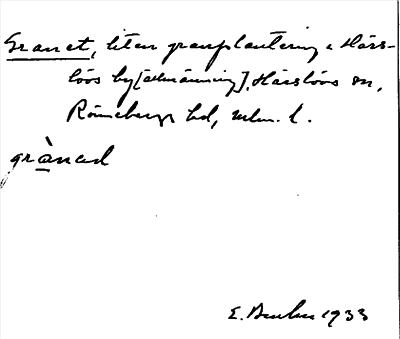 Granet, liten granplantering i Härs-
lövs by [allmänning], Härslövs sn,
Rönnebergs hd, Mlm. l.
grànəd
E. 1933